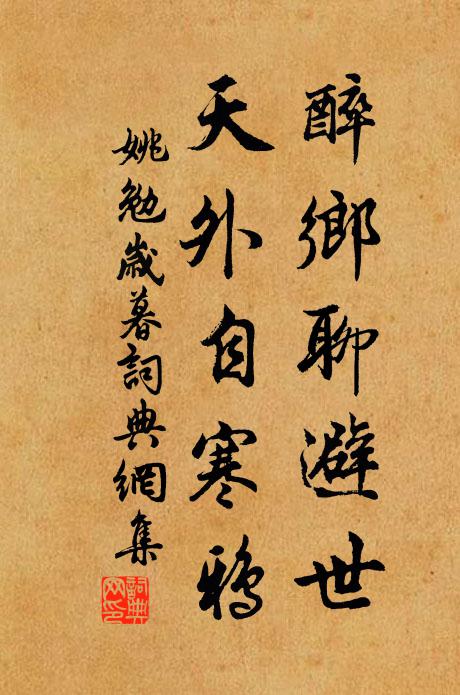 醉鄉聊避世
天外自寒鴉
姚勉歲暮詞典網集
詞典網印